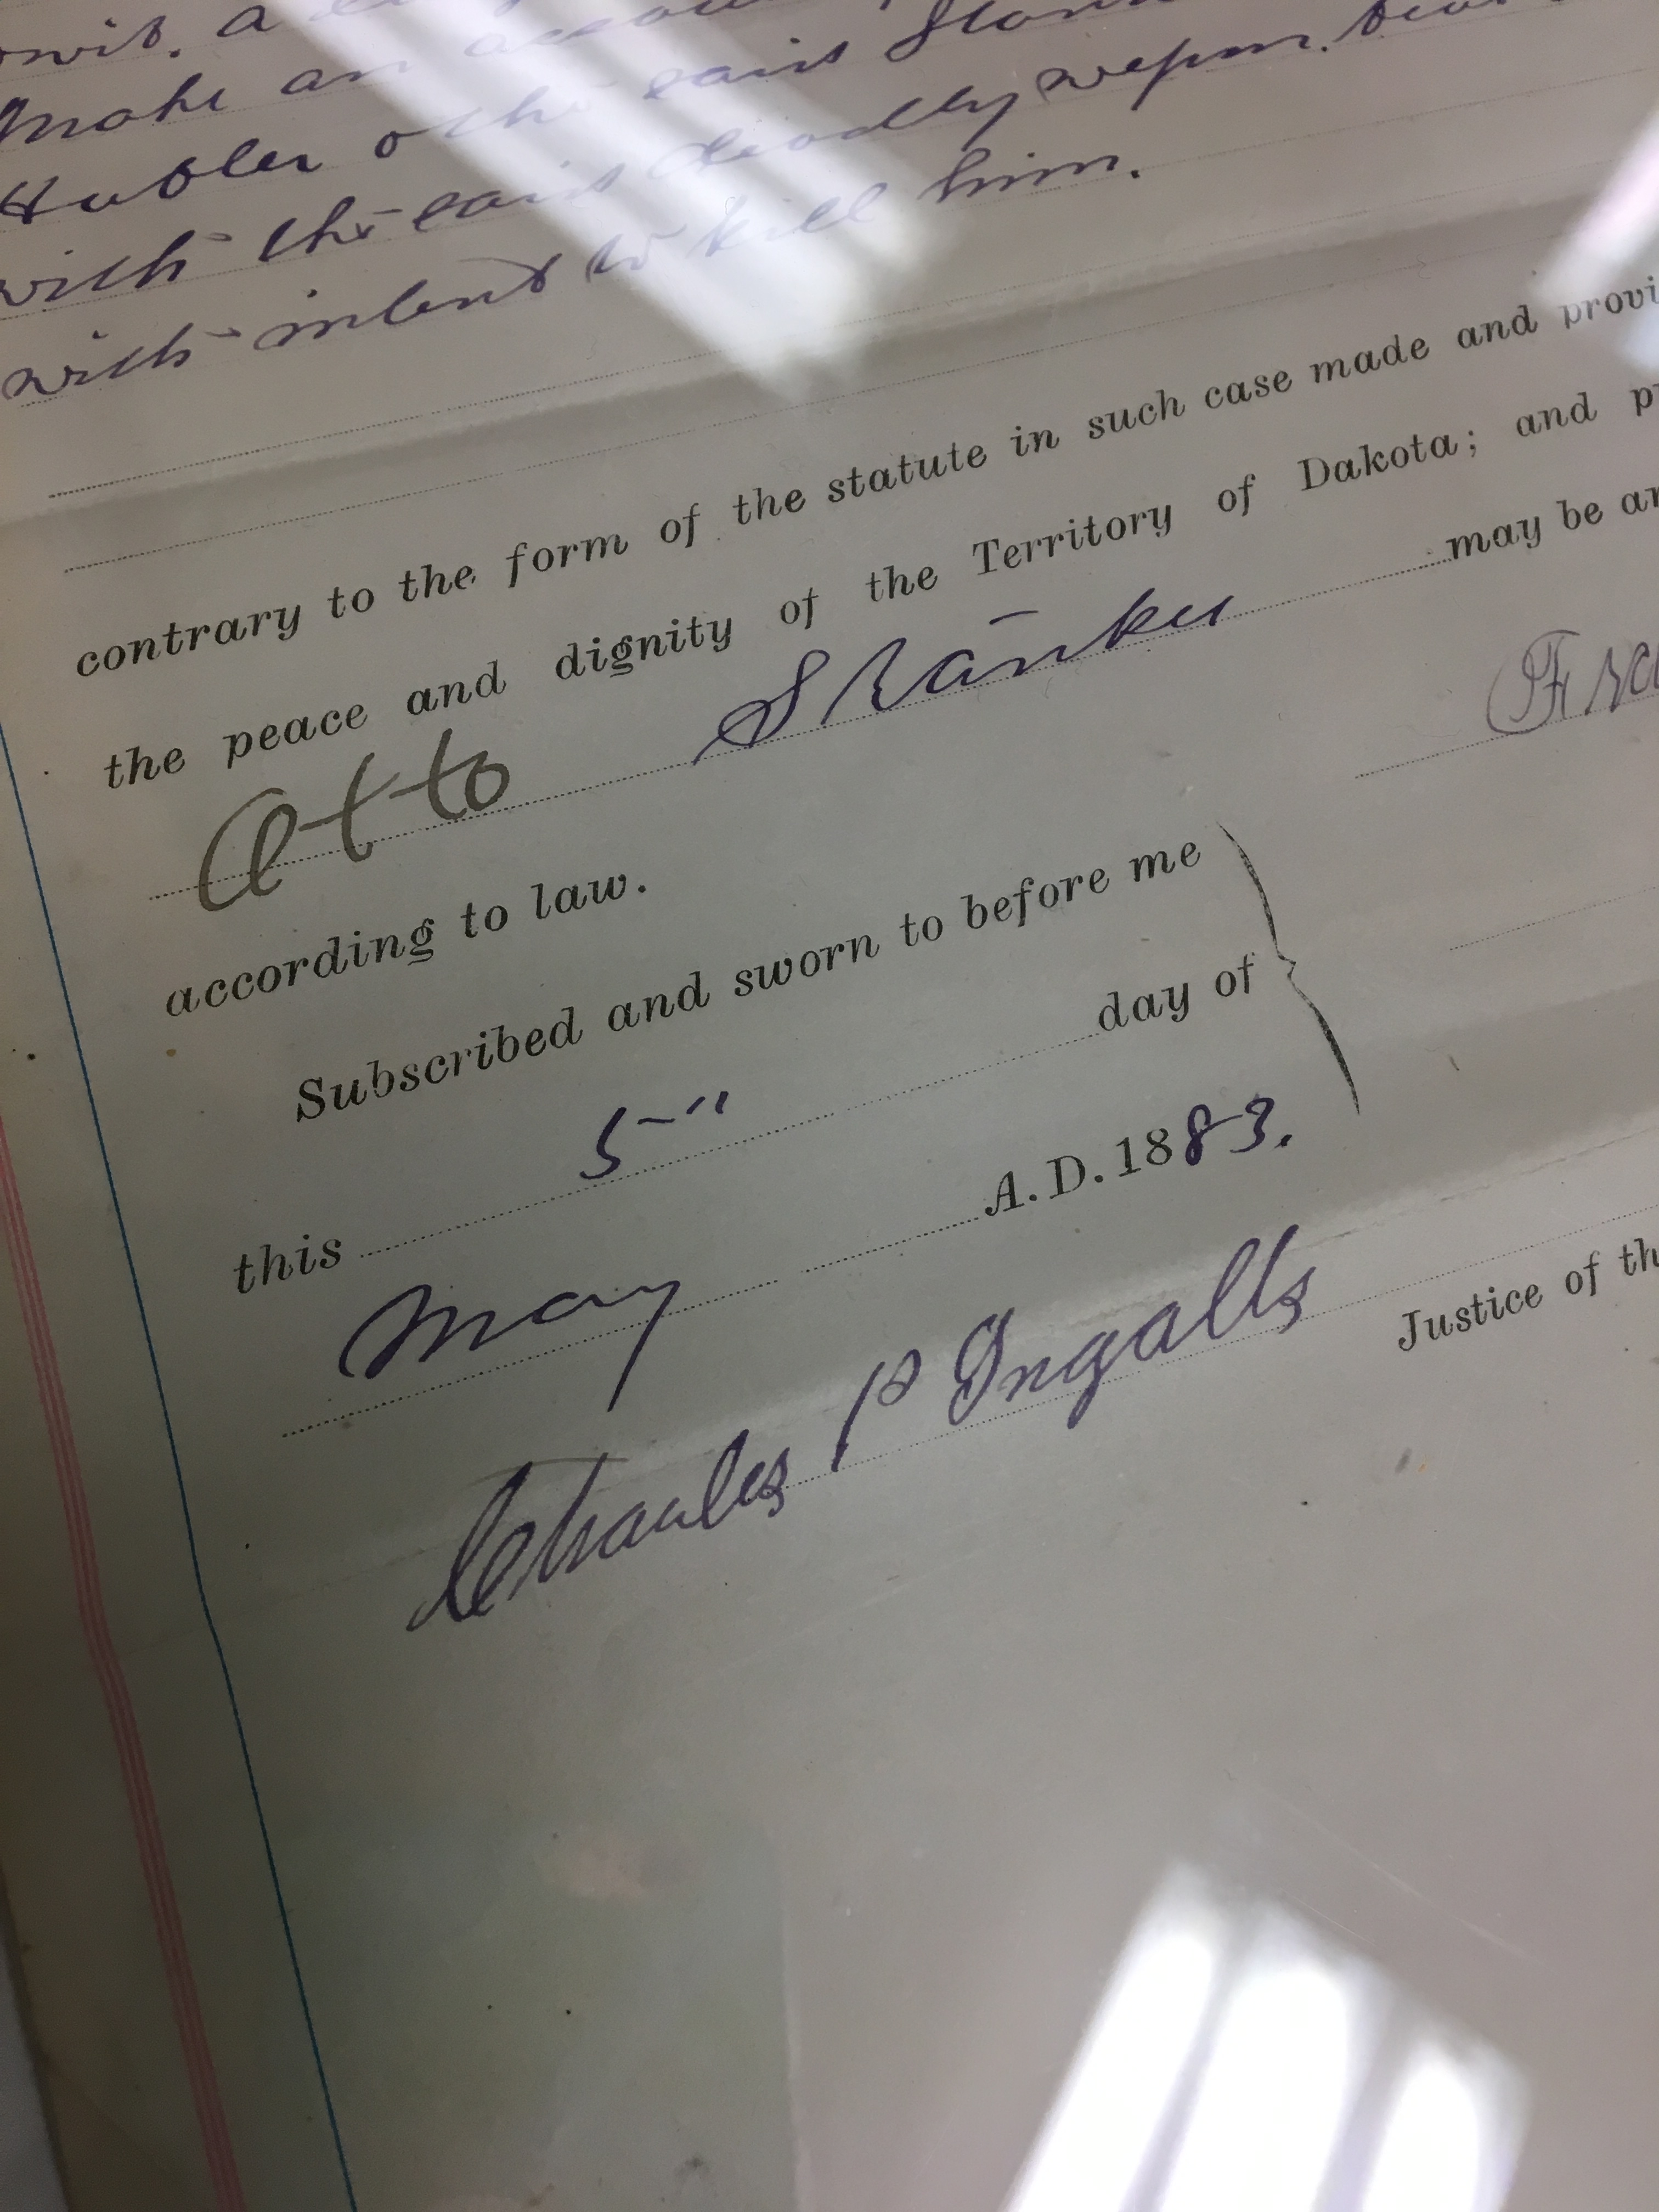 make an
Hubler o the said
with the said deadly wepon.
with intent to kill him.
contrary to the form of the statute in such case made and provi
the peace and dignity of the Territory of Dakota; and p
Otto may be ar
according to law.
Fra
Subscribed and sworn to before me
this 5" day of
May A.D. 1883.
Charles P Ingalls
Justice of th